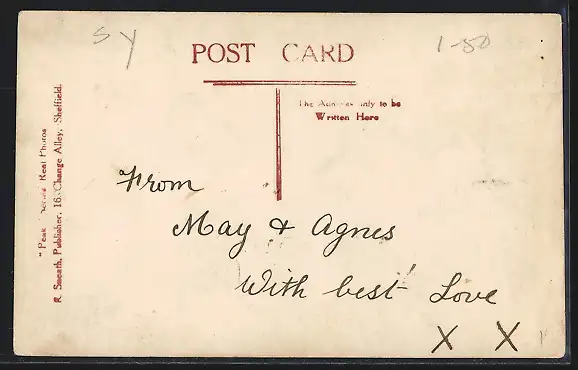 SY
1-50
POST CARD
The Address only to be
Written Here
"Peak Series Real Photos
R. Sneath, Publisher, 16, Change Alley, Sheffield.
From
May & Agnes
With best Love
X X